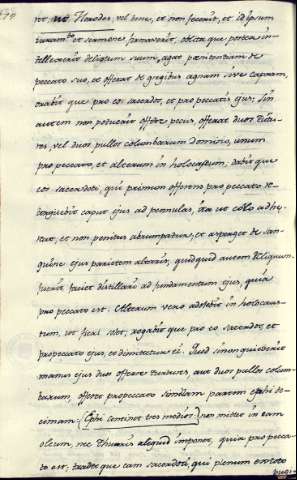 vel bene, et non fecerit, et id ipsum
iuramto et sermone firmaverit, oblita que postea in-
tellexerit delictum suum, agat penitentiam de
peccato suo, et offerat de gregibus agnam sive capram,
orabit que pro eo sacerdos, et pro peccatis ejus; Sin
autem non potuerit offerre pecus, offerat duos turtu-
res, vel duos pullos columbarum domino, unum
pro peccato, et alterum in holocaustum; dabit que
eos sacerdoti, qui primum offerens pro peccato re-
torquebit caput ejus ad pennulas, ita ut collo adhe-
reat, et non penitus abrumpatur, et asperget de san-
guine ejus parietem altaris, quidquid autem reliquum
fuerit faciet distillare ad fundamentum ejus, quia
pro peccato est. Alterum vero adolebit in holocaus-
tum, ut fieri solet, rogabit que pro eo sacerdos, et
pro peccato ejus, et dimittetur ei. Quod si non quiverit
manus ejus duos offerre turtures, aut duos pullos colum-
barum, offeret pro peccato similam partem ephi de-
cimam. (Ephi continet tres modios) non mittet in eam
oleum, nec thuris aliquid imponet, quia pro pecca-
to est, tradet que eam sacerdoti, qui plenum ex toto